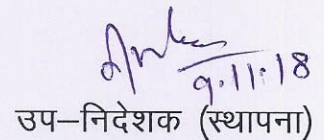 9.11.18
उप–निदेशक (स्थापना)